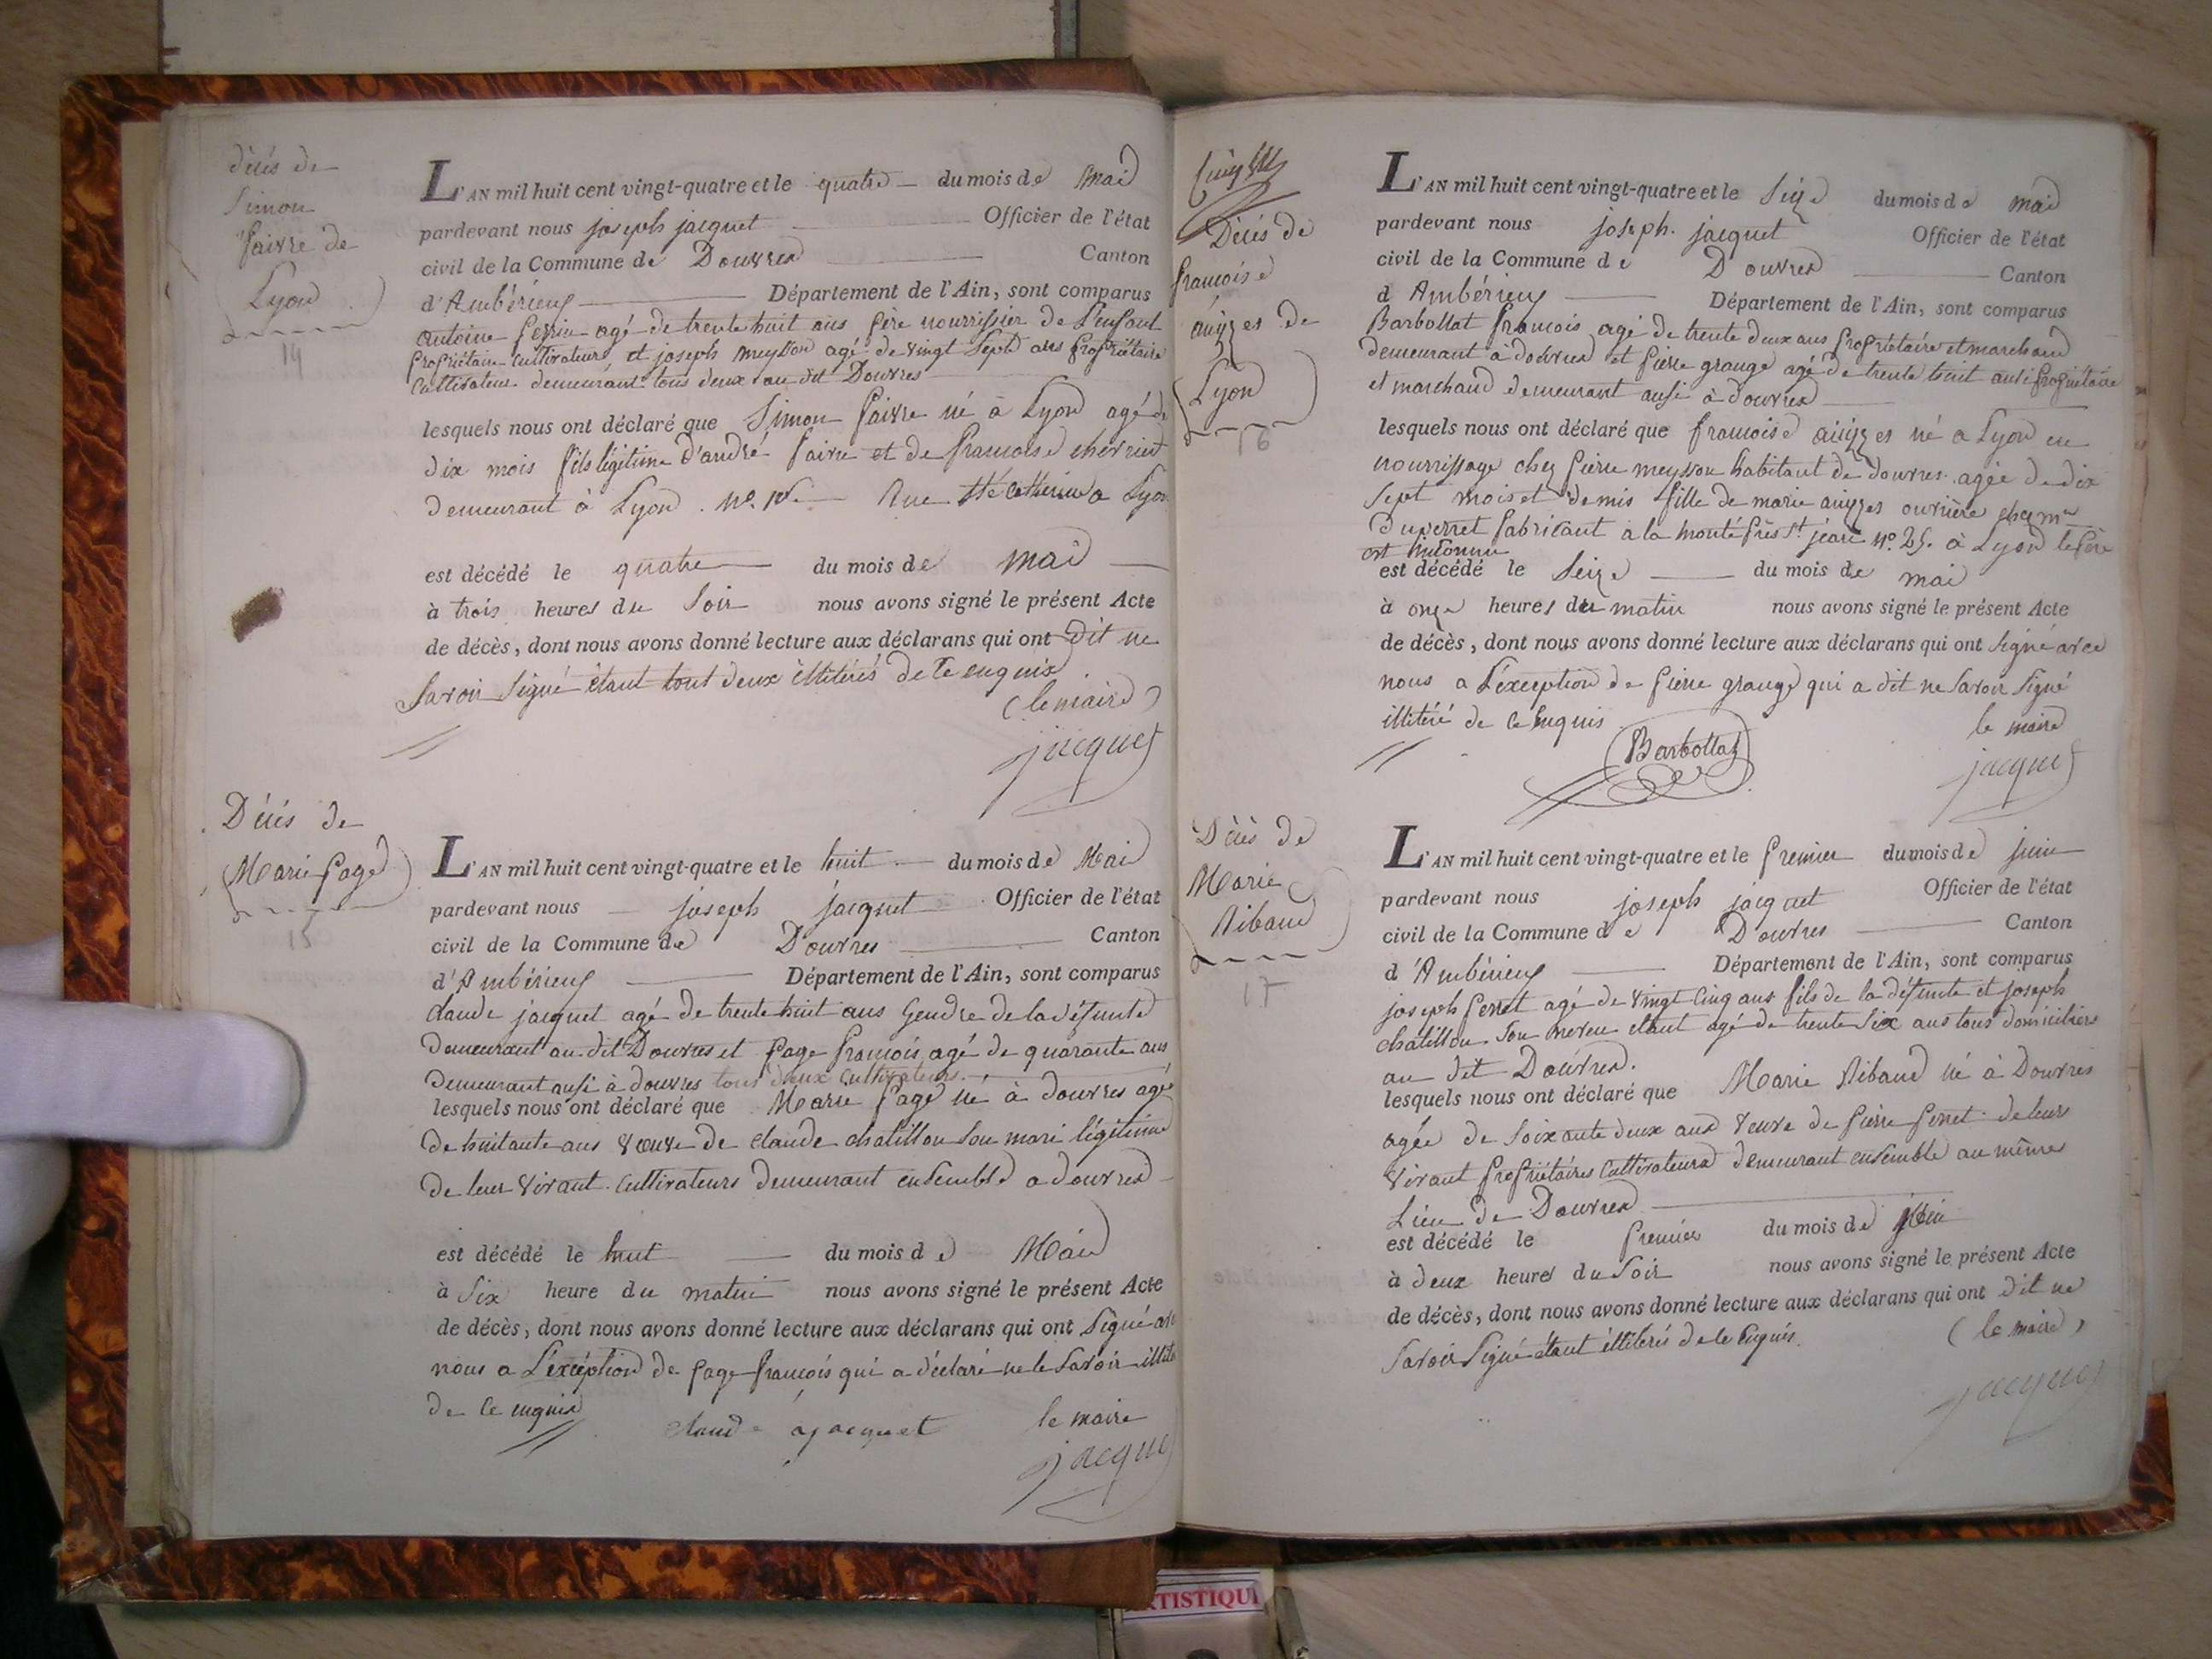 décés de
Simon
faivre de
Lyon
14
L'AN mil huit cent vingt-quatre et le quatre du mois de Mai
pardevant nous joseph jacquet Officier de l'état
civil de la Commune de Douvres Canton
d'Ambérieux Département de l'Ain, sont comparus
antoine perrin agé de trente huit ans père nourrissier de L'enfant
propriétaire Cultivateur et joseph meysson agé de vingt Sept ans propriétaire
Cultivateur demeurant tous deux au dit Douvres
lesquels nous ont déclaré que Simon faivre né à Lyon agé de
dix mois fils légitime d'andré faivre et de francoise
demeurant à Lyon. No. Rue Ste Catherine a Lyon
est décédé le quatre du mois de mai
à trois heures du Soir nous avons signé le présent Acte
de décès, dont nous avons donné lecture aux déclarans qui ont dit ne
Savoir Signé étant tout deux illitérés de ce enquis
(le maire)
jacquet
Décés de
Marie page
15
L'AN mil huit cent vingt-quatre et le huit du mois de Mai
pardevant nous joseph jacquet Officier de l'état
civil de la Commune de Douvres Canton
d'Ambérieux Département de l'Ain, sont comparus
claude jacquet agé de trente huit ans Gendre de la défunte
demeurant au dit Douvres et page francois agé de quarante ans
demeurant ausi à douvres tous deux cultivateurs
lesquels nous ont déclaré que Marie page né à douvres agé
de huitante ans veuve de claude chatillon Son mari légitime
de leur vivant cultivateurs demeurant ensemble a douvres
est décédé le huit du mois de Mai
à Six heure du matin nous avons signé le présent Acte
de décès, dont nous avons donné lecture aux déclarans qui ont Signé
nous a L'exception de page francois qui a déclaré ne le Savoir
de ce enquis
claude jacquet
le maire
jacquet
Décés de
francoise
auyzes de
Lyon
16
L'AN mil huit cent vingt-quatre et le Seize du mois de mai
pardevant nous joseph. jacquet Officier de l'état
civil de la Commune de Douvres Canton
d Ambérieux Département de l'Ain, sont comparus
Barbollat francois agé de trente deux ans propriétaire et marchand
demeurant à douvres et pierre grange agé de trente huit ans propriétaire
et marchand demeurant ausi à douvres
lesquels nous ont déclaré que francoise auyzes né a Lyon en
nourrissage chez pierre meysson habitant de douvres agée de dix
Sept mois et demis fille de marie auyzes ouvrière chez mr
duverret fabricant a la monté près St jean No. 25. à Lyon le père
est inconnu
est décédé le Seize du mois de mai
à onze heures du matin nous avons signé le présent Acte
de décès, dont nous avons donné lecture aux déclarans qui ont Signé avec
nous a L'exception de pierre grange qui a dit ne Savoir Signé
illitéré de ce enquis
le maire
Barbollat
jacquet
Décés de
Marie
Ribaud
17
L'AN mil huit cent vingt-quatre et le premier du mois de juin
pardevant nous joseph jacquet Officier de l'état
civil de la Commune de Douvres Canton
d'Ambérieux Département de l'Ain, sont comparus
joseph perret agé de vingt cinq ans fils de la défunte et joseph
chatillon Son neveu etant agé de trente Six ans tous domiciliers
au dit Douvres.
lesquels nous ont déclaré que Marie Ribaud né à Douvres
agée de Soixante deux ans veuve de pierre perret de leurs
vivant propriétaires Cultivateurs demeurant ensemble au mêmes
Lieu de Douvres
est décédé le premier du mois de juin
à deux heures du Soir nous avons signé le présent Acte
de décès, dont nous avons donné lecture aux déclarans qui ont dit ne
Savoir Signé étant illitérés de ce enquis.
(le maire)
jacquet